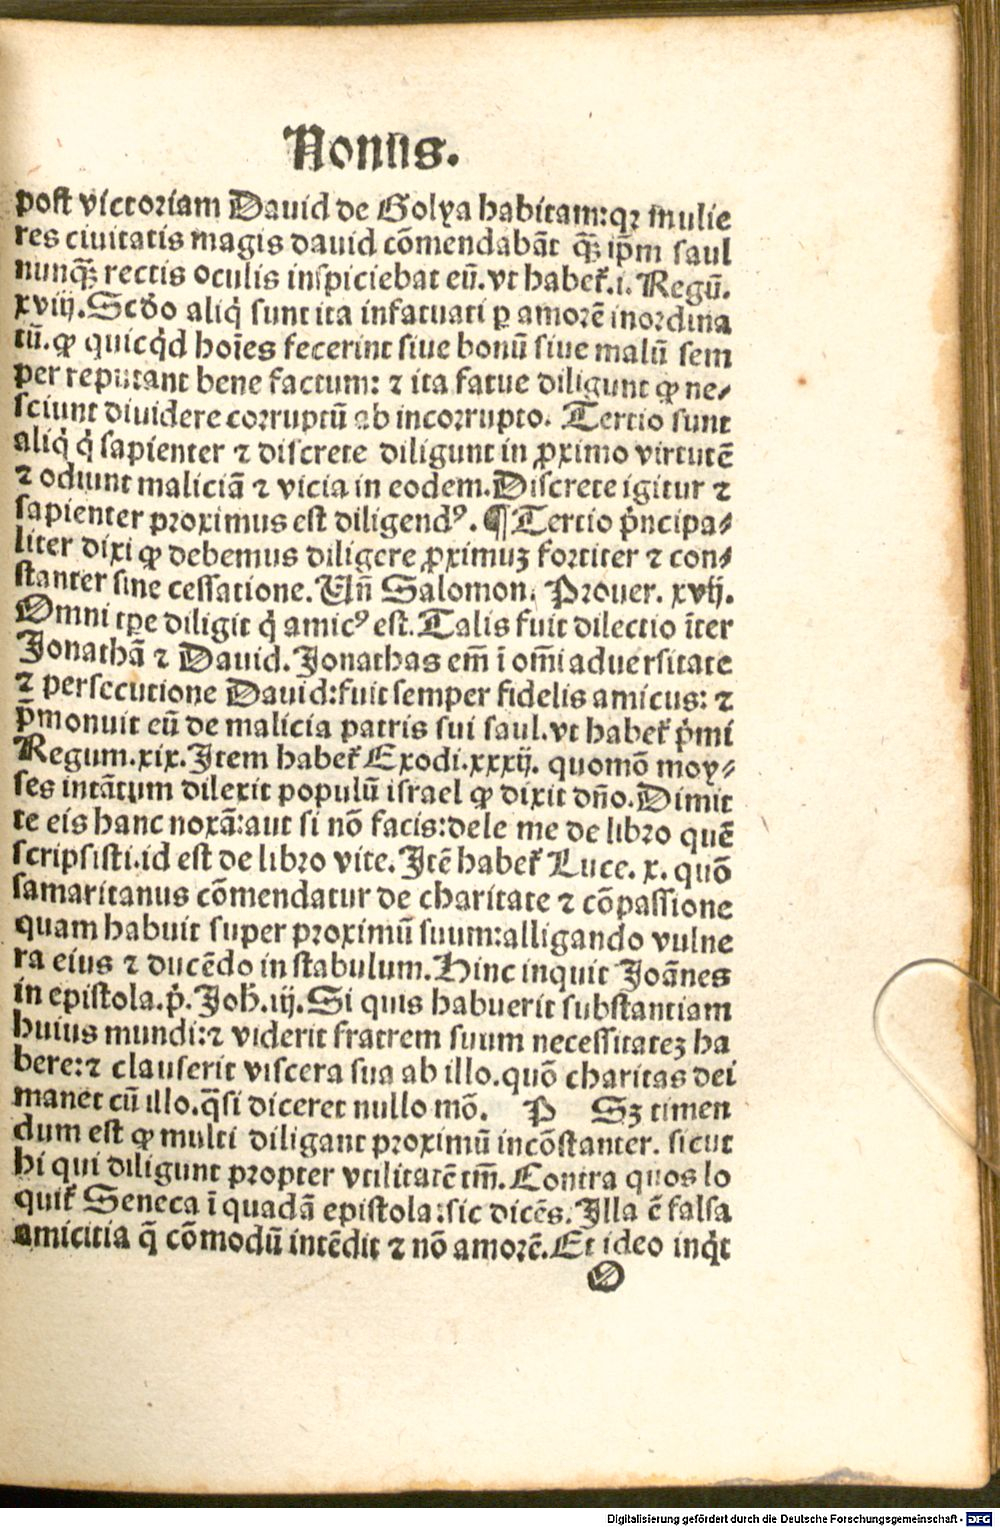 Nonus.
post victoriam Dauid de Golya habitam:qꝛ mulie
res ciuitatis magis dauid cõmendabãt qȝ̃ ip̃m saul
nunqȝ̃ rectis oculis inspiciebat eũ.vt habet̃.i. Regũ.
xviij.Scd̃o aliq̇ sunt ita infatuati ꝑ amorẽ inordina
tũ.ꝙ quicq̇d hoĩes fecerint siue bonũ siue malũ sem
per reputant bene factum: ⁊ ita fatue diligunt ꝙ ne⸗
sciunt diuidere corruptũ ab incorrupto. Tertio sunt
aliq̇ q̇ sapienter ⁊ discrete diligunt in ꝓximo virtutẽ
⁊ odiunt maliciã ⁊ vicia in eodem.Discrete igitur ⁊
sapienter proximus est diligendꝰ. ¶Tertio pͥncipa⸗
liter dixi ꝙ debemus diligere ꝓximuȝ fortiter ⁊ con⸗
stanter sine cessatione.Vñ Salomon. Prouer. xvij.
Omni tꝑe diligit q̇ amicꝰ est.Talis fuit dilectio ĩter
Jonathã ⁊ Dauid.Jonathas em̃ ĩ om̃i aduersitate
⁊ persecutione Dauid:fuit semper fidelis amicus: ⁊
p̃monuit eũ de malicia patris sui saul.vt habet̃ pͥmi
Regum.xix.Item habet̃ Exodi.xxxij. quomõ moy⸗
ses intãtum dilexit populũ israel ꝙ dixit dño.Dimit
te eis hanc noxã:aut si nõ facis:dele me de libro quẽ
scripsisti.id est de libro vite.Itẽ habet̃ Luce. x. quõ
samaritanus cõmendatur de charitate ⁊ cõpassione
quam habuit super proximũ suum:alligando vulne
ra eius ⁊ ducẽdo in stabulum.Hinc inquit Joãnes
in epistola.pͥ. Joh̃.iij.Si quis habuerit substantiam
huius mundi:⁊ viderit fratrem suum necessitateȝ ha
bere:⁊ clauserit viscera sua ab illo.quõ charitas dei
manet cũ illo.q̃si diceret nullo mõ. P Sȝ timen
dum est ꝙ multi diligant proximũ incõstanter. sicut
hi qui diligunt propter vtilitatẽ tm̃.Contra quos lo
quit̃ Seneca ĩ quadã epistola:sic dicẽs. Illa ẽ falsa
amicitia q̃ cõmodũ intẽdit ⁊ nõ amorẽ.Et ideo inq̇t
O
Digitalisierung gefördert durch die Deutsche Forschungsgemeinschaft - DFG